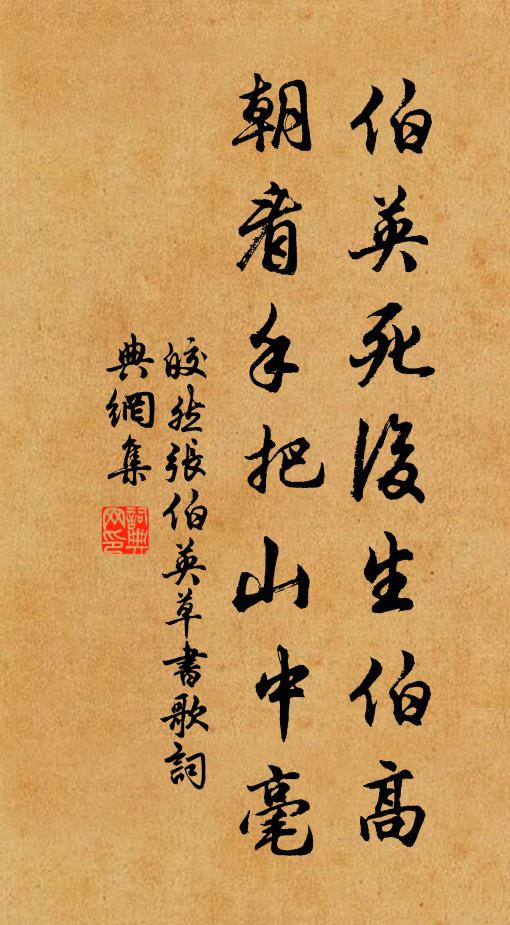 伯英死後生伯高
朝看手把山中毫
皎然張伯英草書歌詞
典網集
詞典網印